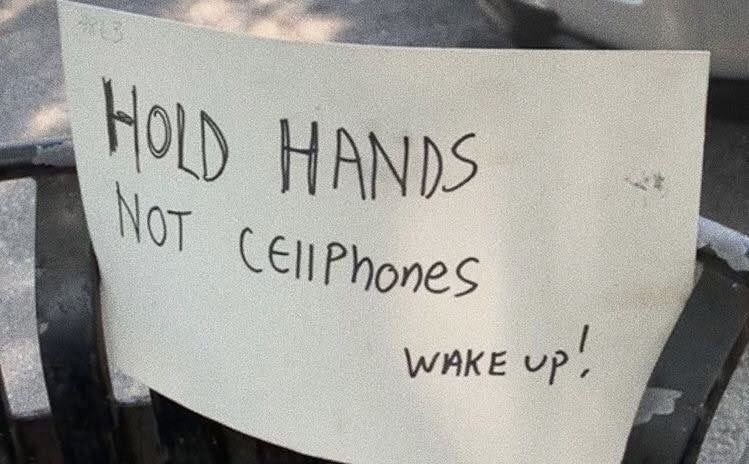 HOLD HANDS
NOT CEllPhones
WAKE UP!